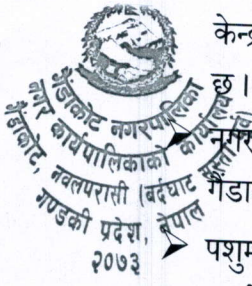 केन्द्र
छ ।
नगर
गैंडा
पशुम
गैंडाकोट नगरपालिका
नगर कार्यपालिकाको कार्यालय
गैंडाकोट, नवलपरासी (बर्दघाट सुस्ता पूर्व)
गण्डकी प्रदेश, नेपाल
२०७३